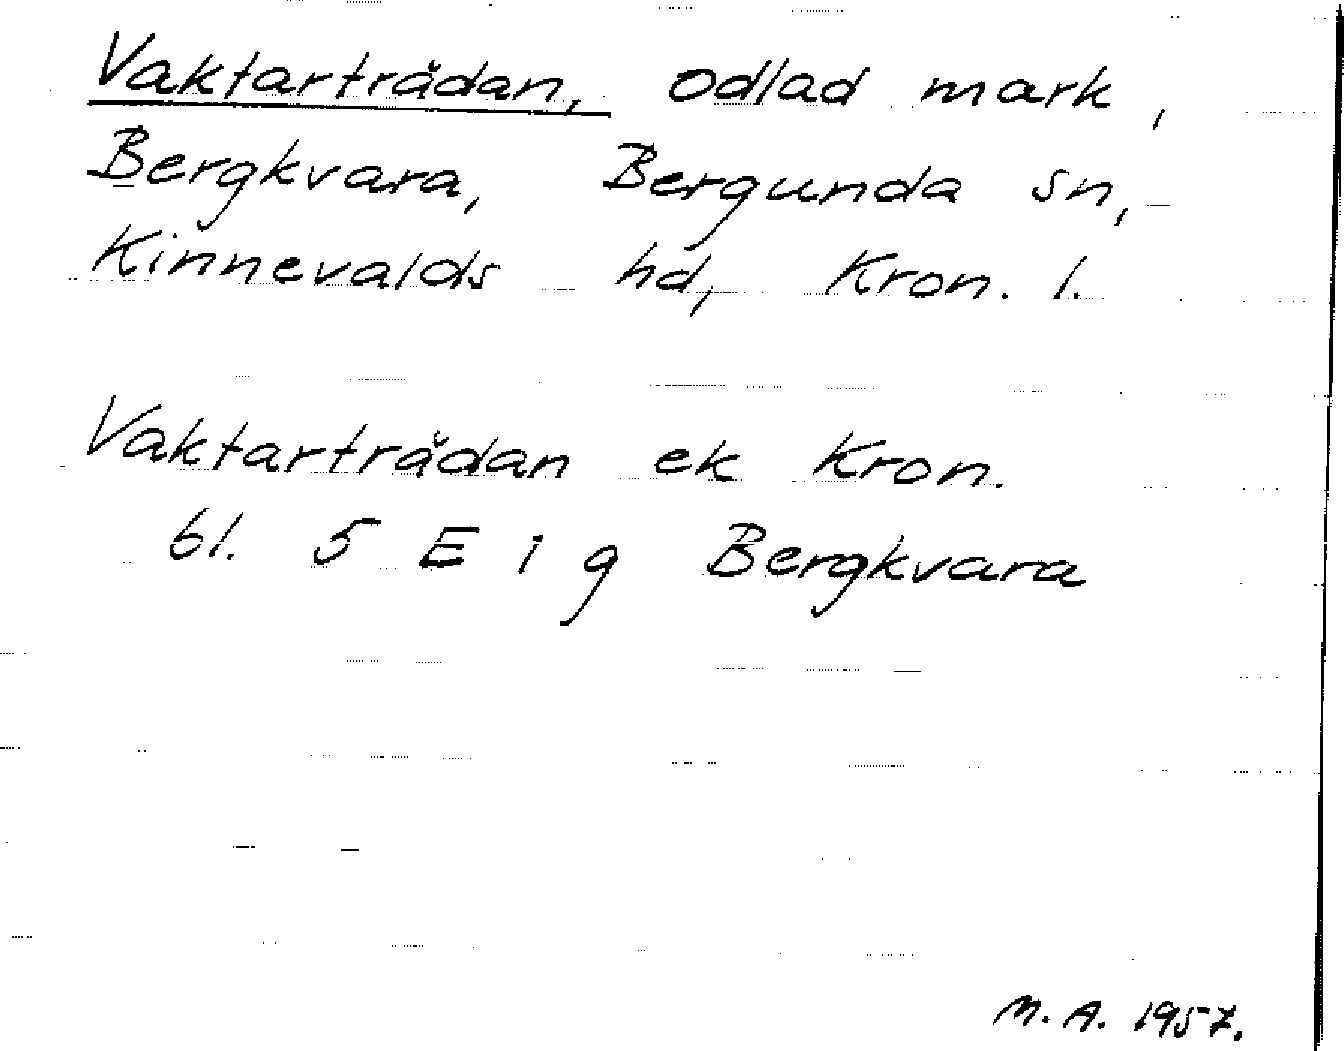 Vaktarträdan, odlad mark,
Bergkvara, Bergunda sn,
Kinnevalds hd, Kron. l.
Vaktarträdan ek Kron.
bl. 5 E i g Bergkvara
M. A. 1957.